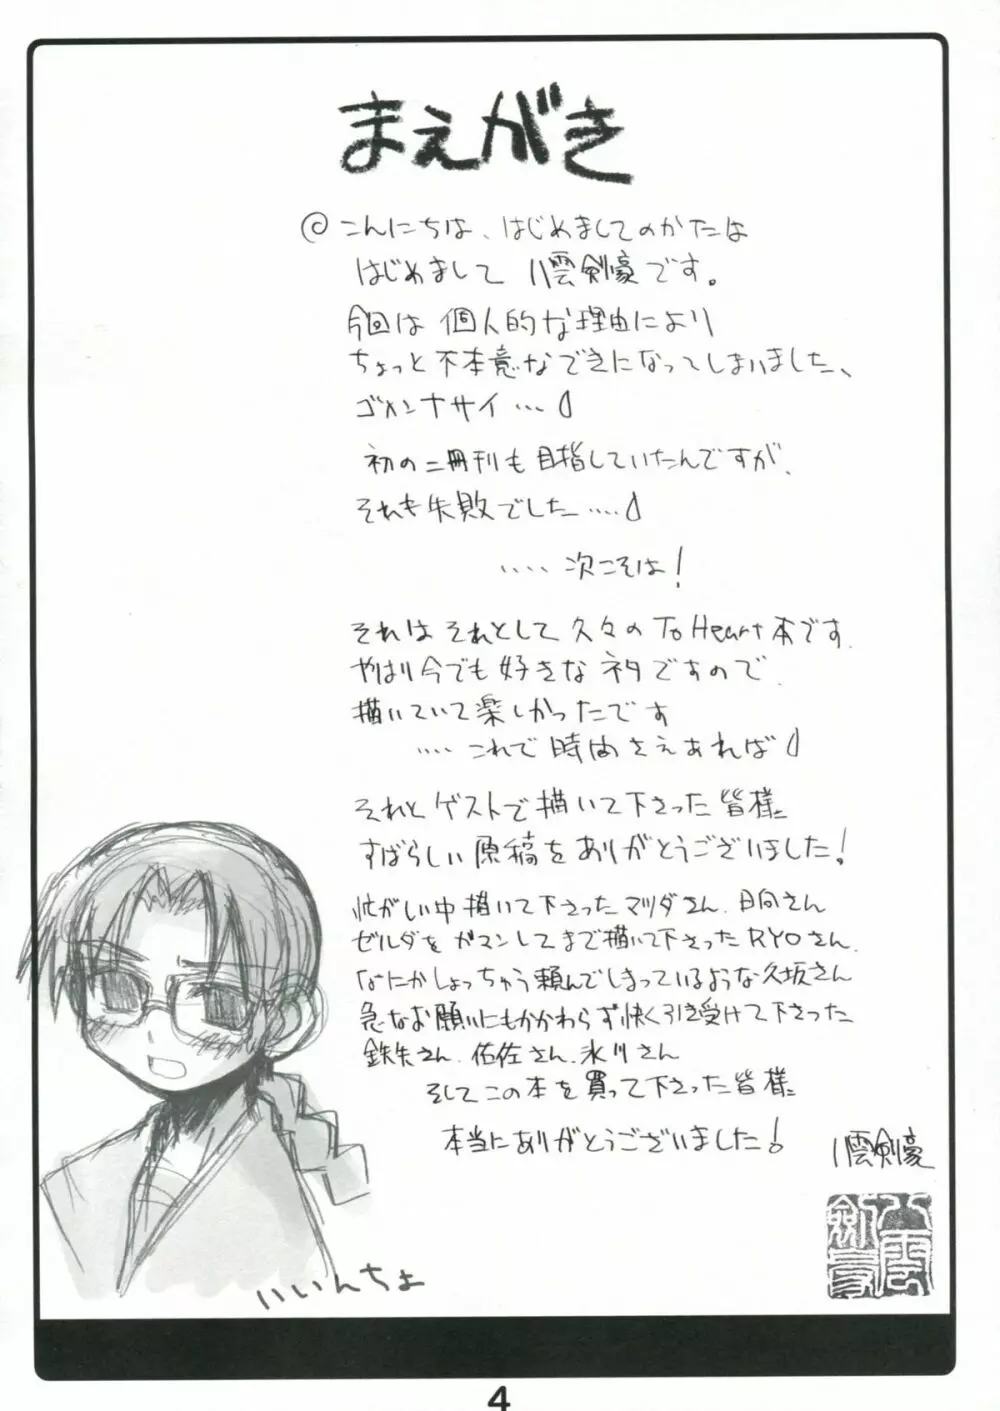 まえがき
◎こんにちは、はじめましてのかたは
はじめまして 八雲剣豪です。
今回は個人的な理由により
ちょっと不本意なできになってしまいました、
ゴメンナサイ…
初の二冊刊も目指していたんですが、
それも失敗でした....
.... 次こそは!
それはそれとして久々のToHeart本です.
やはり今でも好きなネタですので、
描いていて楽しかったです
.... これで時間さえあれば
それとゲストで描いて下さった皆様
すばらしい原稿をありがとうございました!
忙がしい中描いて下さったマツダさん、日向さん
ゼルダをガマンしてまで描いて下さったRYOさん、
なにかしょっちゅう頼んでしまっているような久坂さん
急なお願いにもかかわらず快く引き受けて下さった
鉄矢さん、佑佐さん、氷川さん
そしてこの本を買って下さった皆様
本当にありがとうございました!
八雲剣豪
八雲剣豪
いいんちょ
4